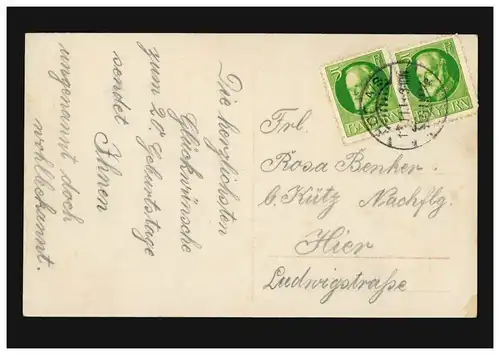 Die herzlichsten
Glückwünsche
zum 20. Geburtstage
sendet Ihnen
ungenannt doch
wohlbekannt.
Frl.
Rosa Benker.
b. Kütz Nachflg.
Hier
Ludwigstraße
BAYERN
BAYERN